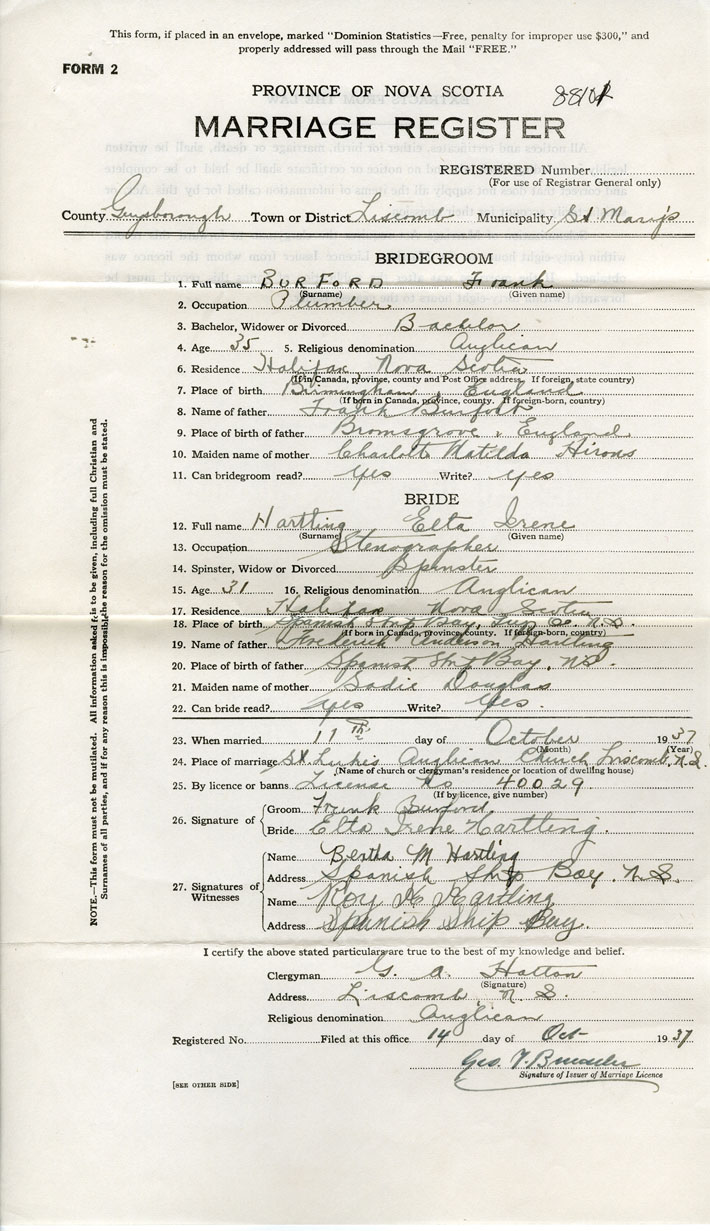 This form, if placed in an envelope, marked "Dominion Statistics—Free, penalty for improper use $300," and
properly addressed will pass through the Mail "FREE."
FORM 2
PROVINCE OF NOVA SCOTIA
MARRIAGE REGISTER
REGISTERED Number
(For use of Registrar General only)
County Guysborough Town or District Liscomb Municipality St Mary's
BRIDEGROOM
1. Full name BURFORD Frank
(Surname) (Given name)
2. Occupation Plumber
3. Bachelor, Widower or Divorced Bachelor
4. Age 35 5. Religious denomination Anglican
6. Residence Halifax Nova Scotia
(If in Canada, province, county and Post Office address. If foreign, state country)
7. Place of birth Birmingham, England
(If born in Canada, province, county. If foreign-born, country)
8. Name of father Frank Burford
9. Place of birth of father Bromsgrove, England
10. Maiden name of mother Charlott Matilda Hirons
11. Can bridegroom read? Yes Write? Yes
BRIDE
12. Full name Hartling Elta Irene
(Surname) (Given name)
13. Occupation Stenographer
14. Spinster, Widow or Divorced Spinster
15. Age 31 16. Religious denomination Anglican
17. Residence Halifax Nova Scotia
18. Place of birth Spanish Ship Bay, Guy. Co. N.S.
(If born in Canada, province, county. If foreign-born, country)
19. Name of father Frederick Anderson Hartling
20. Place of birth of father Spanish Ship Bay, N.S.
21. Maiden name of mother Sadie Douglas
22. Can bride read? Yes Write? Yes.
23. When married 11th day of October 1937
(Month) (Year)
24. Place of marriage St. Luke's Anglican Church Liscomb, N.S.
(Name of church or clergyman's residence or location of dwelling house)
25. By licence or banns License No 40029
(If by licence, give number)
26. Signature of Groom Frank Burford.
Bride Elta Irene Hartling.
27. Signatures of Witnesses
Name Bertha M Hartling
Address Spanish Ship Bay. N.S.
Name Roy A Hartling
Address Spanish Ship Bay.
I certify the above stated particulars are true to the best of my knowledge and belief.
Clergyman G. A. Hatton
(Signature)
Address Liscomb, N.S.
Religious denomination Anglican
Registered No. Filed at this office 14 day of Oct- 1937
Geo.
Signature of Issuer of Marriage Licence
[SEE OTHER SIDE]
NOTE.—This form must not be mutilated. All information asked for is to be given, including full Christian and
Surnames of all parties, and if for any reason this is impossible, the reason for the omission must be stated.